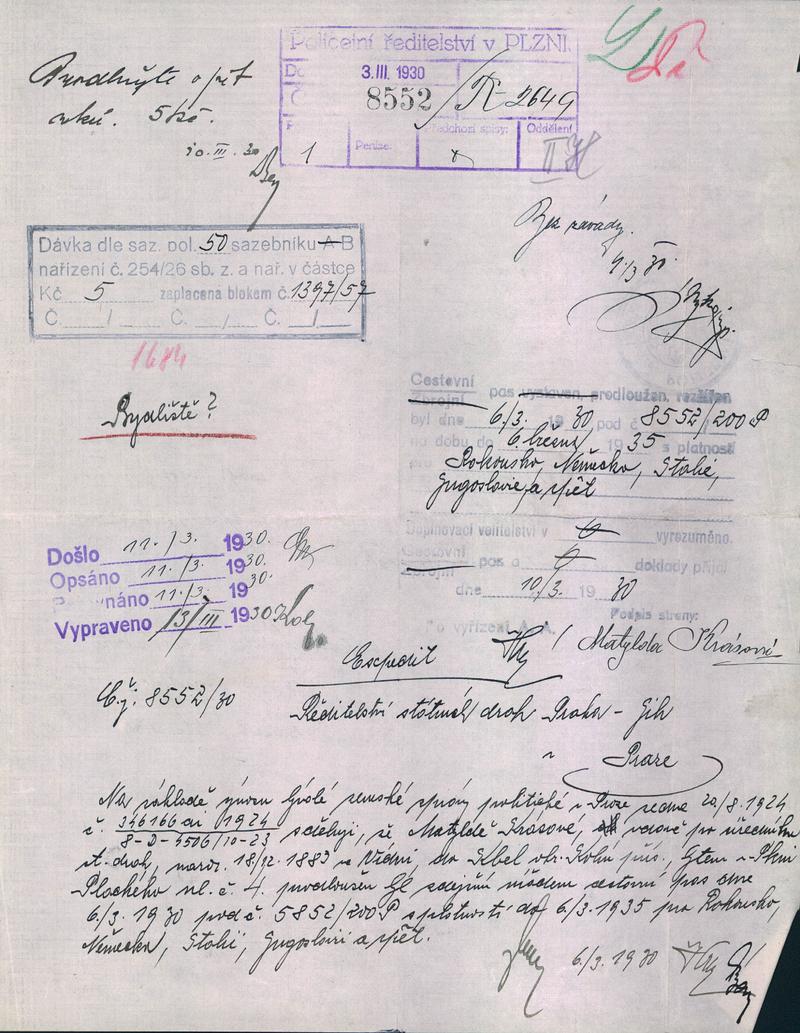 Policejní ředitelství v PLZNI.
3. III. 1930
8552 / R-2649
1
Peníze:
Předchozí spisy:
Oddělení
II H
opět
5 Kč.
10. III. 30
Dávka dle saz. pol. 50 sazebníku A B
nařízení č. 254/26 sb. z. a nař. v částce
Kč 5 zaplacena blokem č. 1397/57
Č. / Č. / Č. /
1684
Bydliště?
Bez závady.
4./3 30.
Cestovní
Zbrojní pas vystaven, prodloužen, rozšířen
byl dne 6./3. 1930 pod č 8552/200 P
na dobu do 6. března 1935 s platností
pro Rakousko, Německo, Italii,
Jugoslavii a zpět
Doplňovací velitelství v vyrozuměno.
Cestovní
Zbrojní pas a doklady přijal
dne 10/3. 1930
Podpis strany:
Po vyřízení A. A.
Matylda Krásová
Došlo 11./3. 1930.
Opsáno 11./3. 1930.
11./3. 1930.
Vypraveno 13/III 1930
Expedit
C.j. 8552/30
Ředitelství státních drah Praha - Jih
v Praze
Na základě výnosu zemské správy politické v Praze ze dne 20/8. 1924
č. 346166 ai 1924
8-D-4506/10-23 sděluji, že Matyldě Krásové, vdově po úředníku
st. drah, naroz. 18/12. 1883 ve Vídni, do Kbel okr. přís., bytem v Plzni
Plachého ul. č. 4. prodloužen byl zdejším úřadem cestovní pas dne
6/3. 1930 pod č. 5852/200P s platností do 6/3. 1935 pro Rakousko,
Německo, Italii, Jugoslavii a zpět.
6/3. 1930